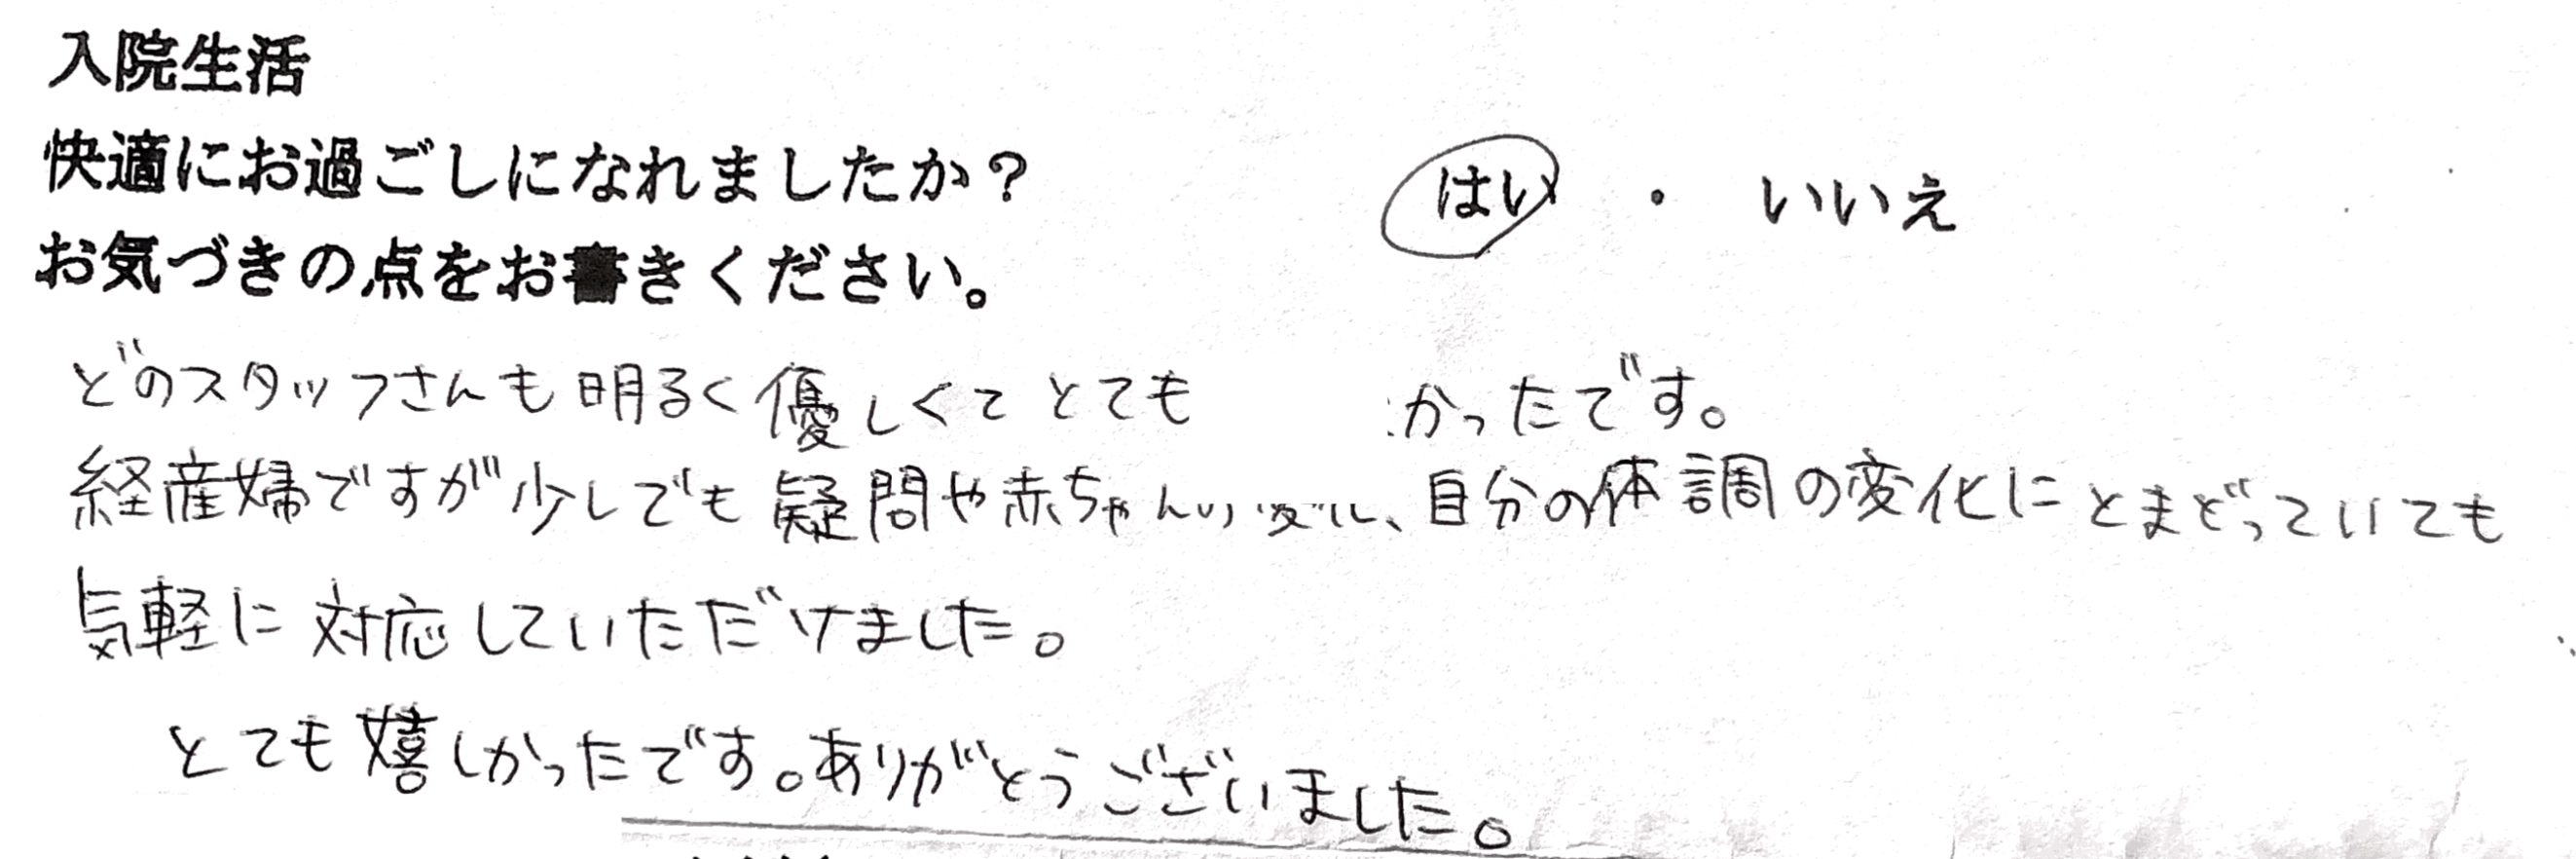 入院生活
快適にお過ごしになれましたか？
はい ・ いいえ
お気づきの点をお書きください。
どのスタッフさんも明るく優しくてとても かったです。
経産婦ですが少しでも疑問や赤ちゃん 、自分の体調の変化にとまどっていても
気軽に対応していただけました。
とても嬉しかったです。ありがとうございました。